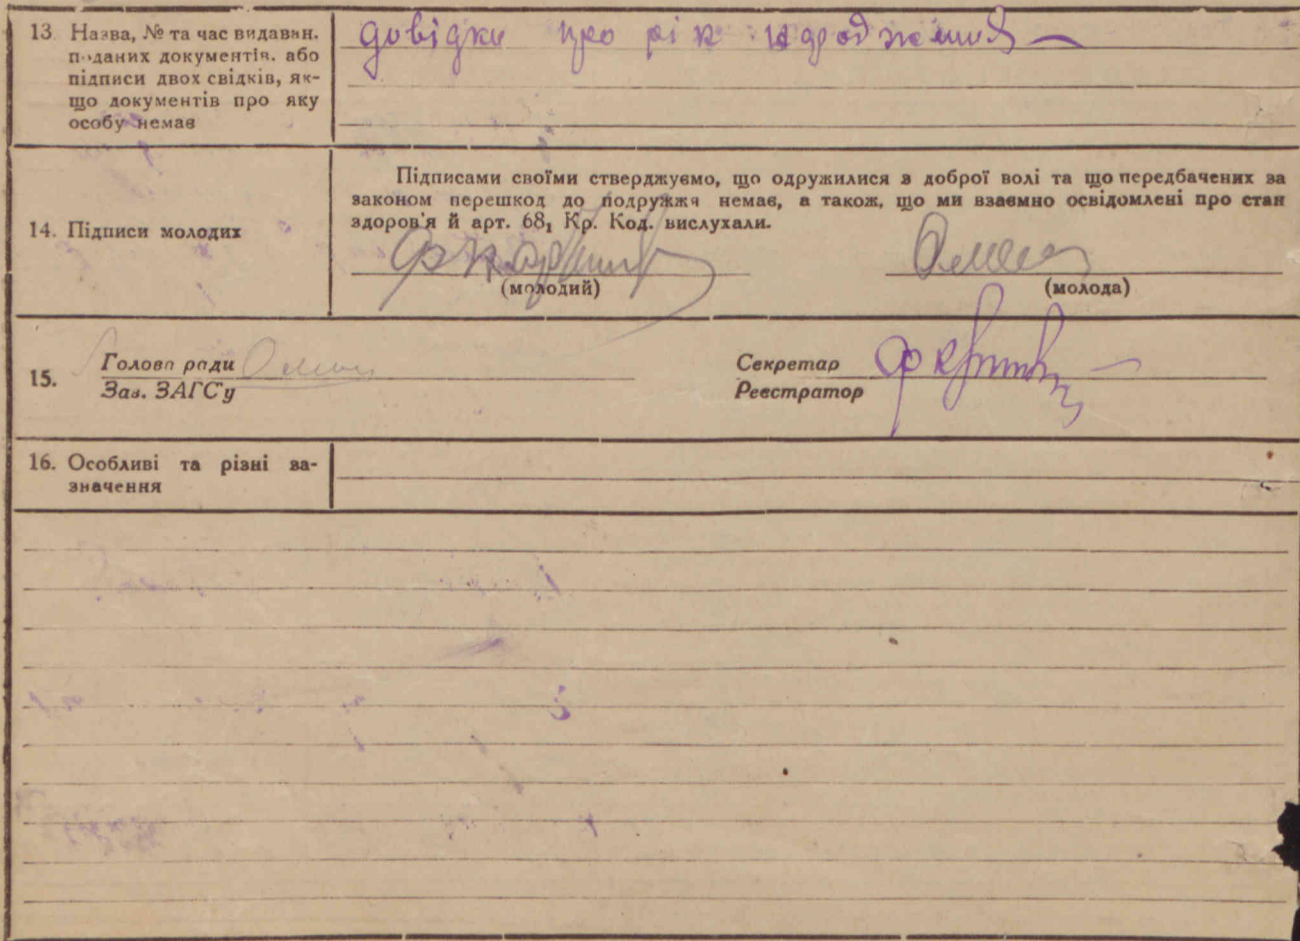 13. Назва, № та час видаван.
поданих документів. або
підписи двох свідків, як-
що документів про яку
особу немає
довідки про рік народження
14. Підписи молодих
Підписами своїми стверджуємо, що одружилися з доброї волі та що передбачених за
законом перешкод до подружжя немає, а також, що ми взаємно освідомлені про стан
здоров'я й арт. 68, Кр. Код. вислухали.
(молодий)
(молода)
15.
Голова ради
Зав. ЗАГС'у
Секретар
Реєстратор
16. Особливі та різні за-
значення